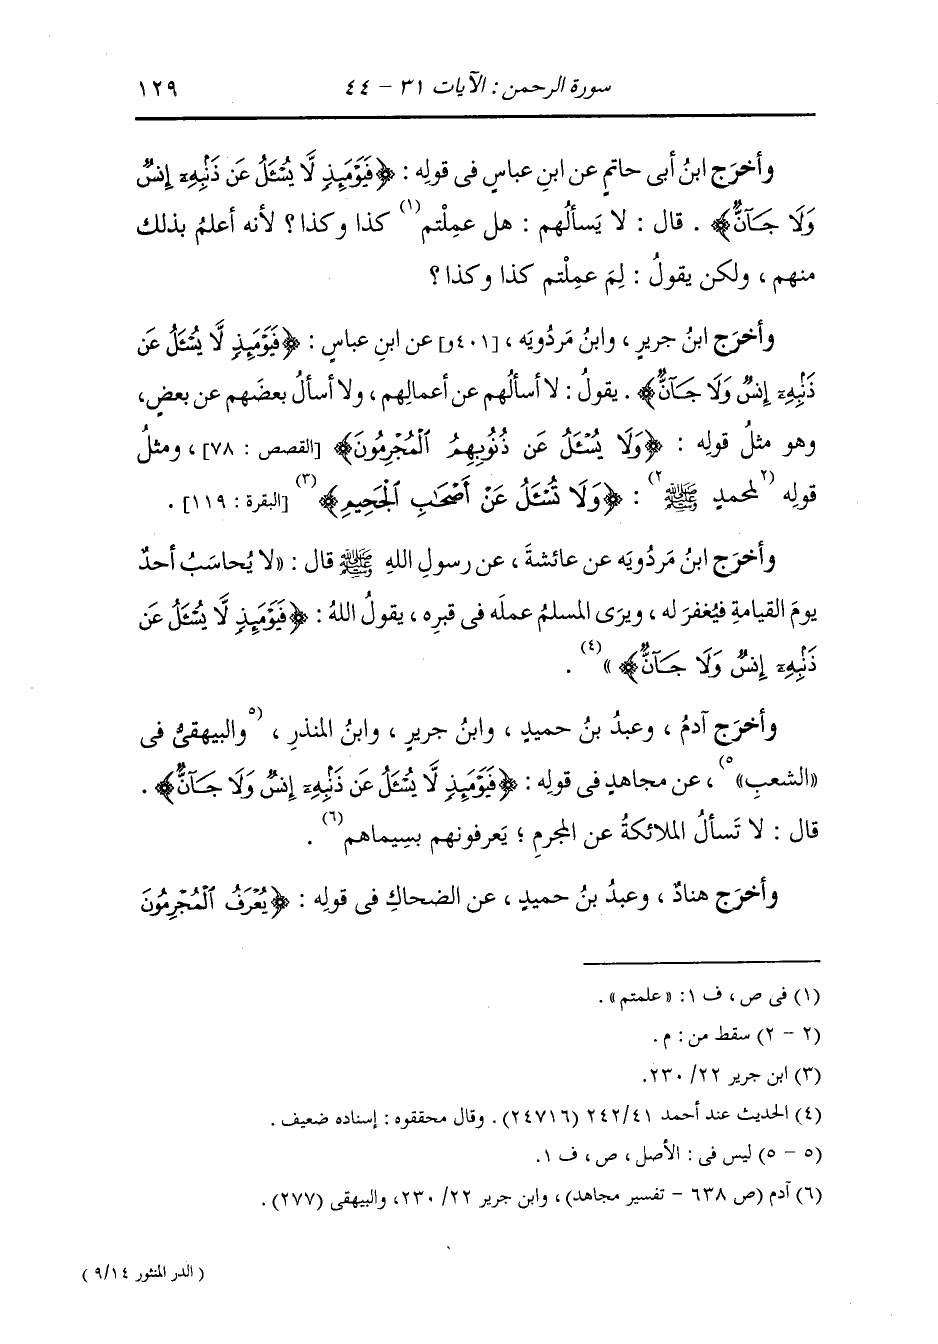 سورة الرحمن : الآيات ٣١ - ٤٤ ١٢٩
وأخرَج ابنُ أبى حاتمٍ عن ابنِ عباسٍ فى قولِه : ﴿فَيَوْمَئِذٍ لَّا يُسْئَلُ عَن ذَنۢبِهِۦٓ إِنسٌ
وَلَا جَآنٌّ﴾ . قال : لا يَسألُهم : هل عمِلْتم(١) كذا وكذا ؟ لأنه أعلمُ بذلك
منهم ، ولكن يقولُ : لِمَ عمِلْتم كذا وكذا ؟
وأخرَج ابنُ جريرٍ ، وابنُ مَردُويَه ، [٤٠١و] عن ابنِ عباسٍ : ﴿فَيَوْمَئِذٍ لَّا يُسْئَلُ عَن
ذَنۢبِهِۦٓ إِنسٌ وَلَا جَآنٌّ﴾ . يقولُ : لا أسألُهم عن أعمالِهم ، ولا أسألُ بعضَهم عن بعضٍ،
وهو مثلُ قولِه : ﴿وَلَا يُسْئَلُ عَن ذُنُوبِهِمُ ٱلْمُجْرِمُونَ﴾ [القصص : ٧٨] ، ومثلُ
قولِه (٢لمحمدٍ ﷺ٢) : ﴿وَلَا تُسْئَلُ عَنْ أَصْحَٰبِ ٱلْجَحِيمِ﴾(٣) [البقرة : ١١٩] .
وأخرَج ابنُ مَردُويَه عن عائشةَ ، عن رسولِ اللهِ ﷺ قال : «لا يُحاسَبُ أحدٌ
يومَ القيامةِ فيُغفرَ له ، ويرَى المسلمُ عملَه فى قبرِه ، يقولُ اللهُ : ﴿فَيَوْمَئِذٍ لَّا يُسْئَلُ عَن
ذَنۢبِهِۦٓ إِنسٌ وَلَا جَآنٌّ﴾ »(٤) .
وأخرَج آدمُ ، وعبدُ بنُ حميدٍ ، وابنُ جريرٍ ، وابنُ المنذرِ ، (٥والبيهقىُّ فى
«الشعبِ»٥) ، عن مجاهدٍ فى قولِه : ﴿فَيَوْمَئِذٍ لَّا يُسْئَلُ عَن ذَنۢبِهِۦٓ إِنسٌ وَلَا جَآنٌّ﴾ .
قال : لا تَسألُ الملائكةُ عن المجرمِ ؛ يَعرفونهم بسِيماهم(٦) .
وأخرَج هنادٌ ، وعبدُ بنُ حميدٍ ، عن الضحاكِ فى قولِه : ﴿يُعْرَفُ ٱلْمُجْرِمُونَ
(١) فى ص ، ف ١: «علمتم» .
(٢ - ٢) سقط من : م .
(٣) ابن جرير ٢٢/ ٢٣٠.
(٤) الحديث عند أحمد ٢٤٢/٤١ (٢٤٧١٦) . وقال محققوه : إسناده ضعيف .
(٥ - ٥) ليس فى : الأصل ، ص ، ف ١.
(٦) آدم (ص ٦٣٨ - تفسير مجاهد) ، وابن جرير ٢٢/ ٢٣٠، والبيهقى (٢٧٧) .
( الدر المنثور ٩/١٤ )